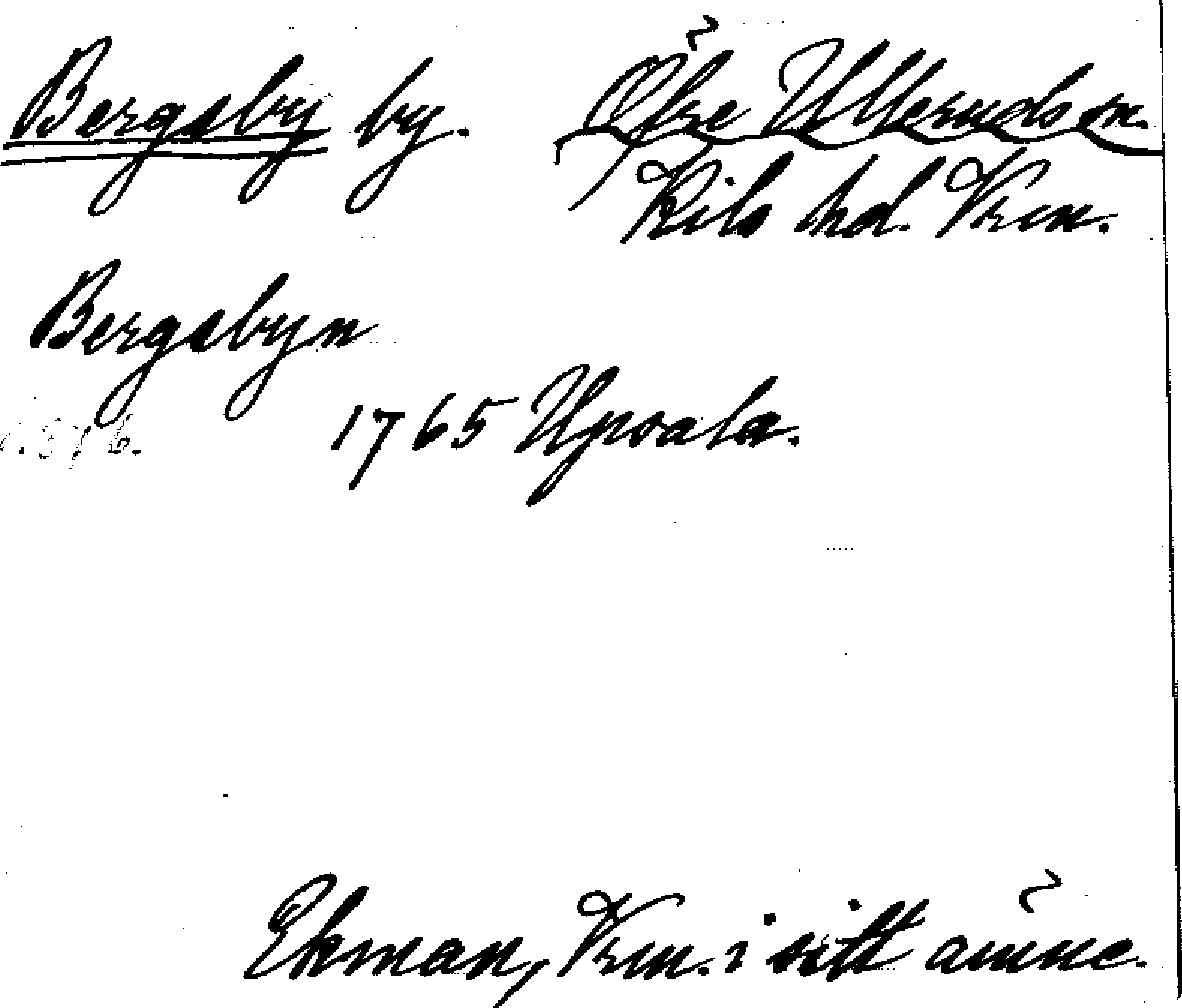 Bergsby by. Öfre Ulleruds sn.
Kils hd. Vrm.
Bergsbyn
1765 Upsala.
Ekman, Vrm. i sitt ämne.